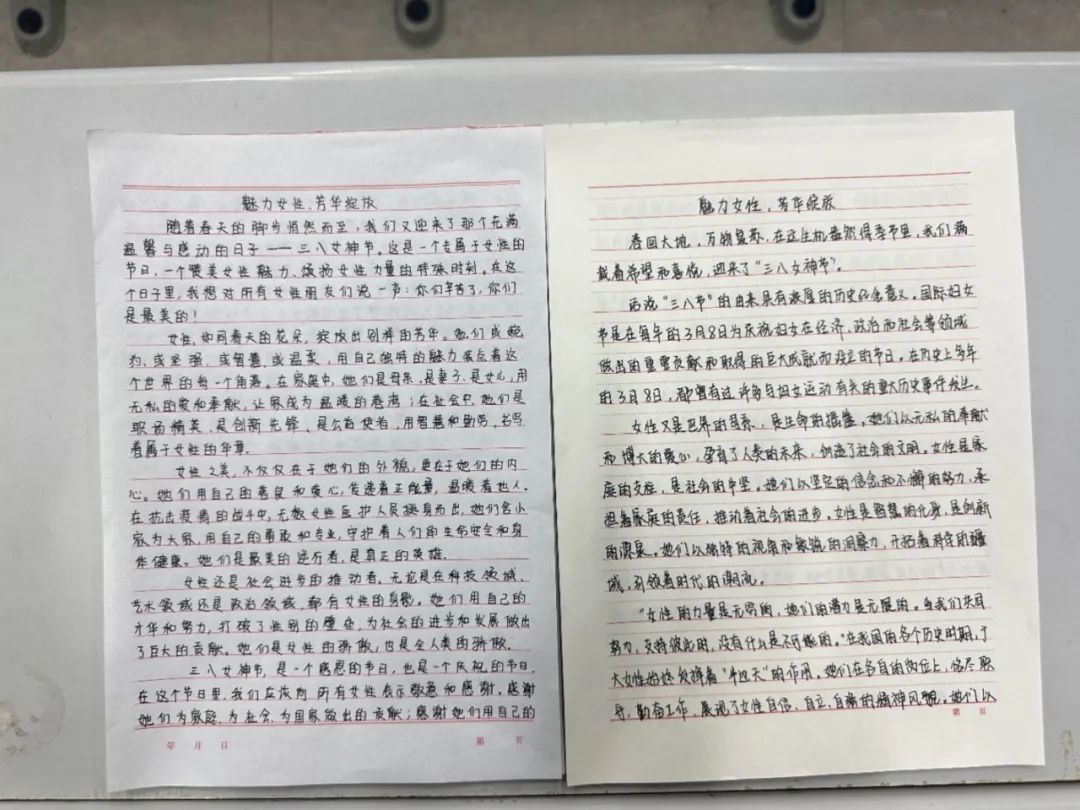 魅力女性,芳华绽放
随着春天的脚步悄然而至,我们又迎来了那个充满
温馨与感动的日子——三八女神节。这是一个专属于女性的
节日,一个赞美女性魅力、颂扬女性力量的特殊时刻。在这
个日子里,我想对所有女性朋友们说一声:你们辛苦了,你们
是最美的!
女性,如同春天的花朵,绽放出别样的芳华。她们或婉
约、或坚强,或智慧、或温柔,用自己独特的魅力点缀着这
个世界的每一个角落。在家庭中,她们是母亲、是妻子、是女儿,用
无私的爱和奉献,让家成为温暖的港湾;在社会中,她们是
职场精英、是创新先锋、是公益使者,用智慧和勤劳,书写
着属于女性的华章.
女性之美,不仅仅在于她们的外貌,更在于她们的内
心。她们用自己的善良和爱心,传递着正能量,温暖着他人.
在抗击疫情的战斗中,无数女性医护人员挺身而出,她们舍小
家为大家,用自己的勇敢和专业,守护着人们的生命安全和身
体健康。她们是最美的逆行者,是真正的英雄.
女性还是社会进步的推动者。无论是在科技领域、
艺术领域还是政治领域,都有女性的身影。她们用自己的
才华和努力,打破了性别的壁垒,为社会的进步和发展做出
了巨大的贡献。她们是女性的骄傲,也是全人类的骄傲.
三八女神节,是一个感恩的节日,也是一个庆祝的节日.
在这个节日里,我们应该向所有女性表示敬意和感谢。感谢
她们为家庭、为社会、为国家做出的贡献;感谢她们用自己的
年 月 日
第 页
魅力女性,芳华绽放
春回大地,万物复苏,在这生机盎然得季节里,我们满
载着希望和喜悦,迎来了“三八女神节”。
话说“三八节”的由来具有浓厚的历史纪念意义。国际妇女
节是在每年的3月8日为庆祝妇女在经济、政治和社会等领域
做出的重要贡献和取得的巨大成就而设立的节日。在历史上多年
的3月8日,都曾有过许多与妇女运动有关的重大历史事件发生。
女性又是世界的母亲,是生命的摇篮。她们以无私的奉献
和博大的爱心,孕育了人类的未来,创造了社会的文明。女性是家
庭的支柱,是社会的中坚。她们以坚定的信念和不懈的努力,承
担着家庭的责任,推动着社会的进步。女性是智慧的化身,是创新
的源泉。她们以独特的视角和敏锐的洞察力,开拓着科学的疆
域,引领着时代的潮流。
“女性的力量是无穷的,她们的潜力是无限的。当我们共同
努力,支持彼此时,没有什么是不可能的。”在我国的各个历史时期,广
大女性始终发挥着“半边天”的作用。她们在各自的岗位上,恪尽职
守,勤奋工作,展现了女性自信、自立、自强的精神风貌。她们以
第 页